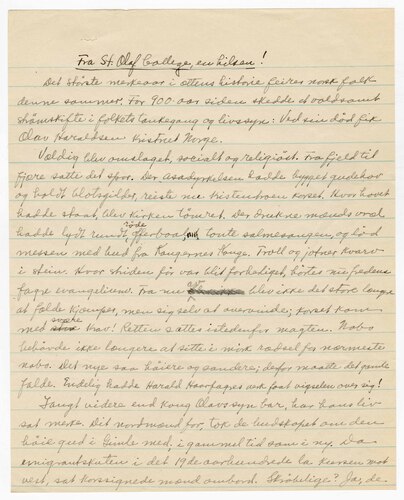 Fra St. Olaf College, en hilsen!
Det störste merkeaar i ættens historie feires norsk folk
denne sommer. For 900 aar siden skedde et voldsomt
strömskifte i folkets tankegang og livssyn: Ved sin död fik
Olav Haraldson kristnet Norge.
Vældig blev omslaget, socialt og religiöst. Fra fjeld til
fjære satte det spor. Der Asadyrkelsen hadde bygget gudehov
og holdt blotsgilder, reiste nu kristentroen korset. Hvor hovet
hadde staat, blev kirken tömret. Der drukne mænds vræl
hadde lydt rundt röde offerbaal, tonte salmesangen, og löd
messen med bud fra Kongernes Konge. Troll og jotner kvarv
i stein. Hvor striden för var blit forherliget, hörtes nu fredens
fagre evangelium. Fra nu blev ikke det störe længre
at fælde kjemper, men sig selv at overvinde; korset kom
med svære krav! Retten sattes istedenfor magten. Nabo
behövde ikke længere at sitte i mörk rædsel for nærmeste
nabo. Det nye saa höiere og sandere; derfor maatte det gamle
falde. Endelig hadde Harald Haarfagres verk faat vigselen over sig!
Langt videre end kong Olavs syn bar, har hans liv
sat merke. Dit nordmænd for, tok de budskapet om den
höie gud i Gimle med, i gammel tid som i ny. Da
emigrantskuten i det 19de aarhundrede la kursen mot
vest, sat korssignede mænd ombord. Skröbelige? Ja, de